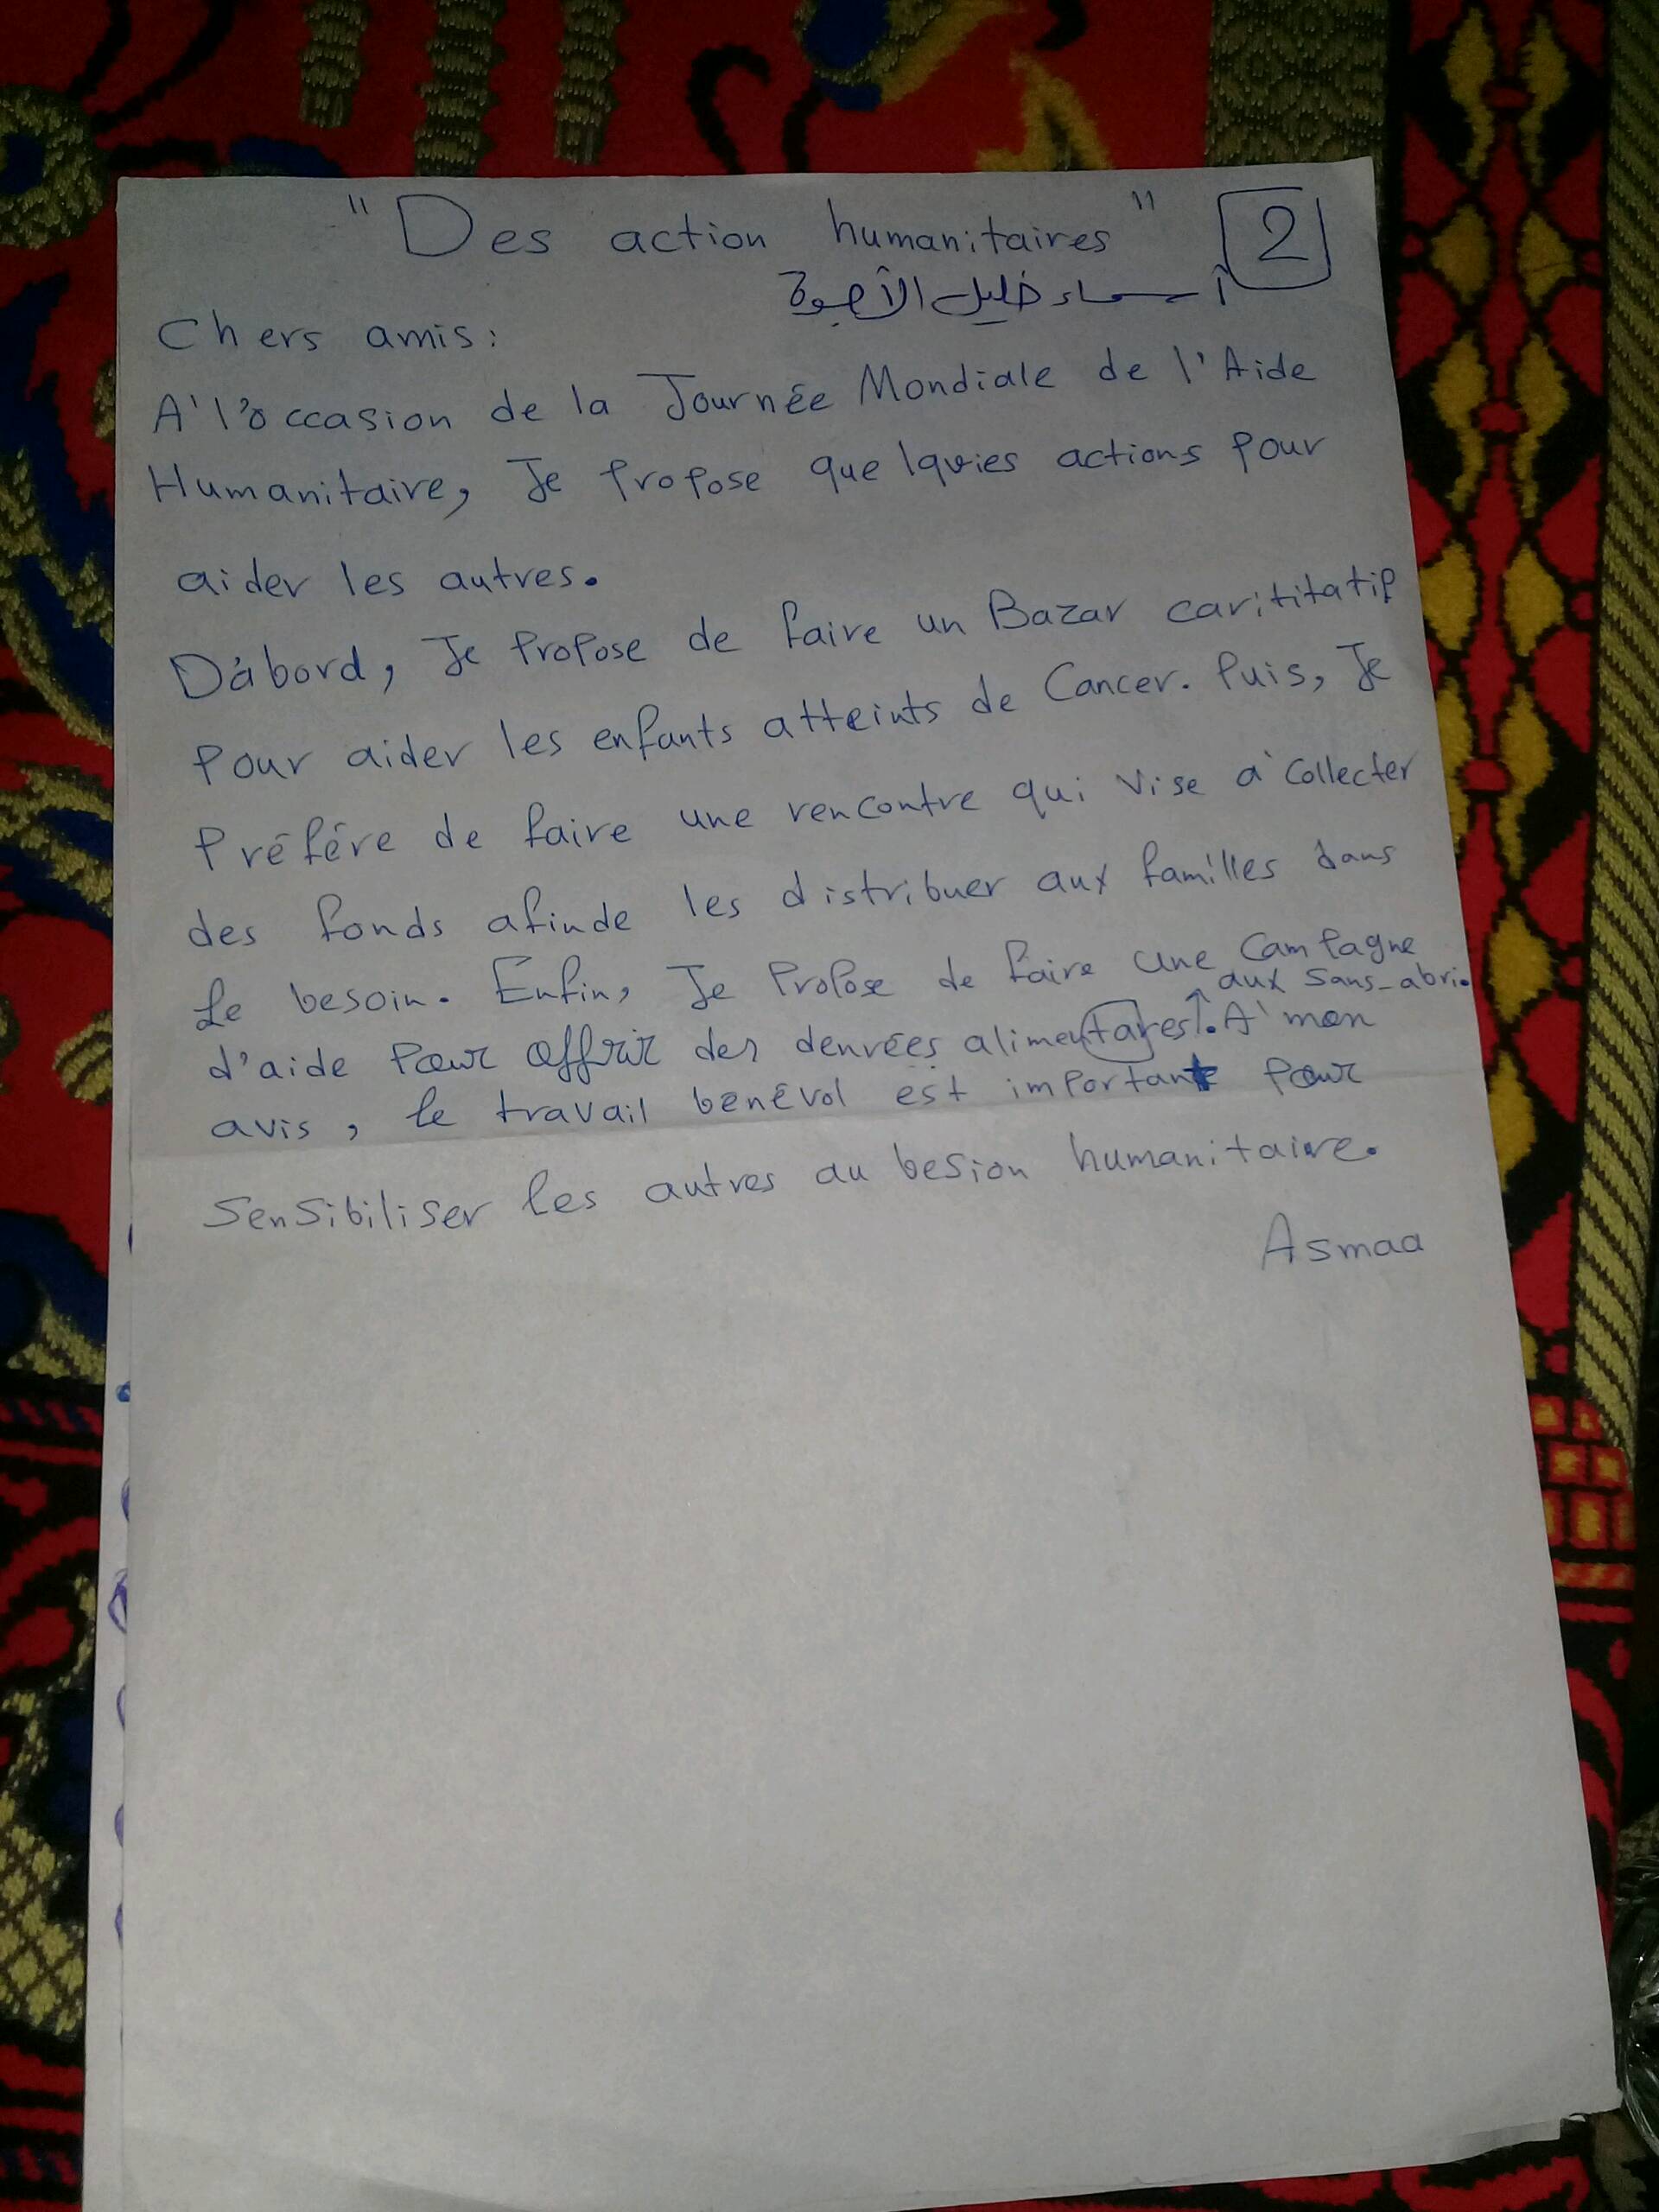 "Des action humanitaires" 2
أسماء خليل الأجوة
Chers amis:
A' l'occasion de la Journée Mondiale de l'Aide
Humanitaire, Je propose quelqvies actions pour
aider les autres.
D'abord, Je propose de faire un Bazar carititatif
pour aider les enfants atteints de Cancer. Puis, Je
préfére de faire une rencontre qui vise a' collecter
des fonds afinde les distribuer aux familles dans
Le besoin. Enfin, Je propose de faire une campagne
aux sans-abri.
d'aide pour offrir des denrées alimentares. A' mon
avis, le travail bénévol est important pour
sensibiliser les autres au besion humanitaire.
Asmaa